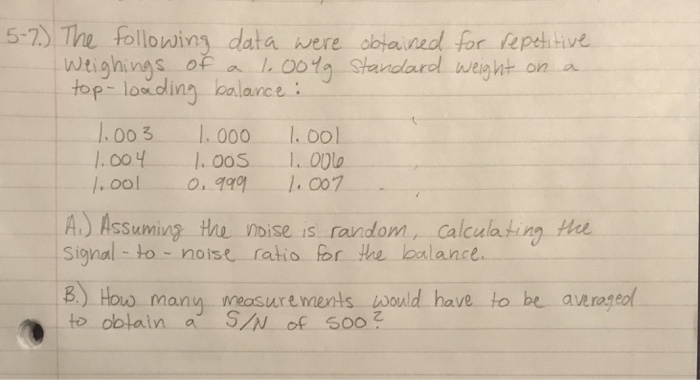 5-7.) The following data were obtained for repetitive
weighings of a 1.004g standard weight on a
top-loading balance:
1.003 1.000 1.001
1.004 1.005 1.006
1.001 0.999 1.007
A.) Assuming the noise is random, calculating the
signal-to-noise ratio for the balance.
B.) How many measurements would have to be averaged
to obtain a S/N of 500?